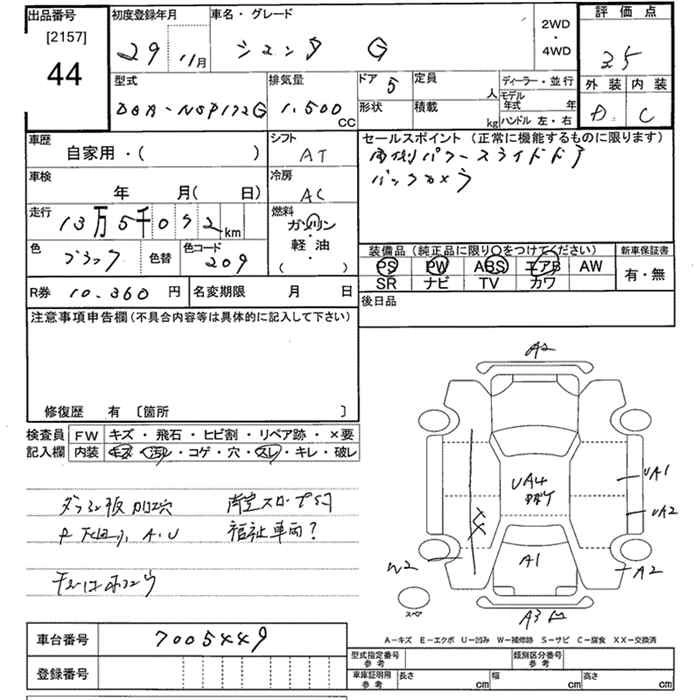 出品番号
[2157]
44
初度登録年月
29 11月
車名・グレード
シエンタ G
2WD
・
4WD
評価点
3.5
外装 内装
D C
型式
DBA-NSP172G
排気量
1,500
CC
ドア 5
定員 人
形状
積載 kg
ディーラー・並行
モデル
年式 年
ハンドル 左・右
車歴
自家用・( )
シフト
AT
セールスポイント (正常に機能するものに限ります)
両側パワースライドドア
バックカメラ
車検
年 月( 日)
冷房
AC
走行
13万5千092km
燃料
ガソリン
・
軽油
・
( )
色 ブラック 色替
色コード
209
装備品(純正品に限り○をつけてください)
PS PW ABS エアB AW
SR ナビ TV カワ
新車保証書
有・無
R券 10,360 円
名変期限 月 日
後日品
注意事項申告欄(不具合内容等は具体的に記入して下さい)
修復歴 有 〔箇所 〕
検査員
記入欄
FW キズ・飛石・ヒビ割・リペア跡・×要
内装 キズ・汚れ・コゲ・穴・スレ・キレ・破レ
加工穴
A.U
福祉車両?
A2
UA4
UA1
UA2
XX
W2
A1
A2
スペア
A3
A-キズ E-エクボ U-凹み W-補修跡 S-サビ C-腐食 XX-交換済
車台番号 7005449
登録番号
型式指定番号
参考
類別区分番号
参考
車庫証明用
参考
長さ cm 幅 cm 高さ cm